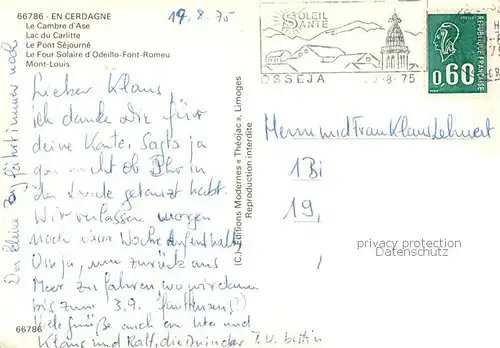 66786 - EN CERDAGNE
Le Cambre d'Ase
Lac du Carlitte
Le Pont Séjourné
Le Four Solaire d'Odeillo-Font-Romeu
Mont-Louis
17.8.75
SOLEIL
SANTE
OSSEJA
-8-75
REPUBLIQUE FRANÇAISE
0,60
Lieber Klaus,
ich danke Dir für
deine Karte. Sagts ja
gar nicht ob Ihr in
getanzt habt.
Wir verlassen morgen
nach einer Woche Aufenthalt
Osseja, um zurück ans
Meer zu fahren, wo wir dann
bis zum 3.9.
Viele Grüße auch an Uta und
Klaus und Ralf, die Kinder
Der kleine Zug fährt immer noch
(C.) Editions Modernes « Théojac », Limoges
Reproduction interdite
Herrn und Frau Klaus Lehnert
1 Bi
19,
privacy protection
Datenschutz
66786